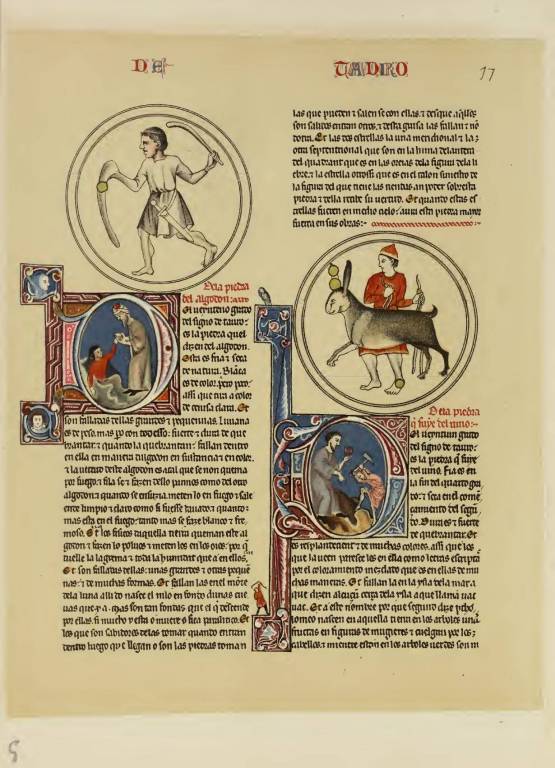 DE
TAURO
17
Dela piedra
del algodon: auro
El uerniteno grado
del signo de tauro:
es la piedra quel
dizen del algodon.
Esta es fria z seca
de natura. Blāca
es de color. pero pero
assi que tira a color
de creusa clara. Et
son falladas dellas grandes z pequennas. Liuiana
es de peso. mas pō con todo esso: fuerte z dura de que
brantar. z quando la quebrantan: fallan dentro
en ella en manera dalgodon en sustancia z en color.
z la uertud deste algodon es atal que se non quema
por fuego. z fila se z fazen dello pannos como del otro
algodon. z quando se ensuzia. meten lo en fuego z sale
ende limpio z claro como si fuesse lauado. z quanto
mas esta en el fuego. tanto mas se faze blanco z fre
moso. Et los fisicos daquella tierra queman este al
godon z fazen lo poluos z meten los en los oios. por q̄
tuelle la lagrema z toda la humidat que a en ellos.
Et son falladas dellas: unas grandes z otras peque
nas. z de muchas formas. Et fallan las en el mōte
dela luna allı do nasce el nilo en fondo dunas cue
uas que y a. mas son tan fondas que el q̄ desçende
por ellas. si mucho y esta o muere o finca paralitico. Et
los que son sabidores delas tomar quando entran
dentro luego que llegan o son las piedras toman
las que pueden z salen se con ellas. z desque aq̄llos
son salidos entran otros. z desta guisa las fallan z nō
dotra. Et las dos estrellas la una meridional z la
otra septentrional que son en la linna delantera
del quadrante que es en las oreias dela figura dela li
ebre. z la estrella otrossi que es en el talon siniestro de
la figura del que tiene las riendas. an poder sobresta
piedra z della recibe su uertud. Et quando estas es
trellas fueren en medio cielo: aura esta piedra mayor
fuerça en sus obras:-
Dela piedra
q̄ fuye del uino:-
El uerniuun grado
del signo de tauro.
es la piedra q̄ fuye
del uino. Fria es en
la fin del quarto gra
do: z seca en el come
çamiento del segū
do. Dura es z fuerte
de quebrantar. Et
es resplandeciente z de muchas colores. assi que los
que la ueen paresce les en ella como letras escriptas
por el coloramiento mezclado que es en ellas de mu
chas maneras. Et fallan la en la ysla dela mar a
que dizen alen cerca dela ysla a que llaman uac
uac. Et a este nombre por que segund dize ptolo
meo nascen en aquella tierra en los arboles unas
fructas en figuras de mugieres z cuelgan por los
cabellos. z mientre estan en los arboles uerdes son m